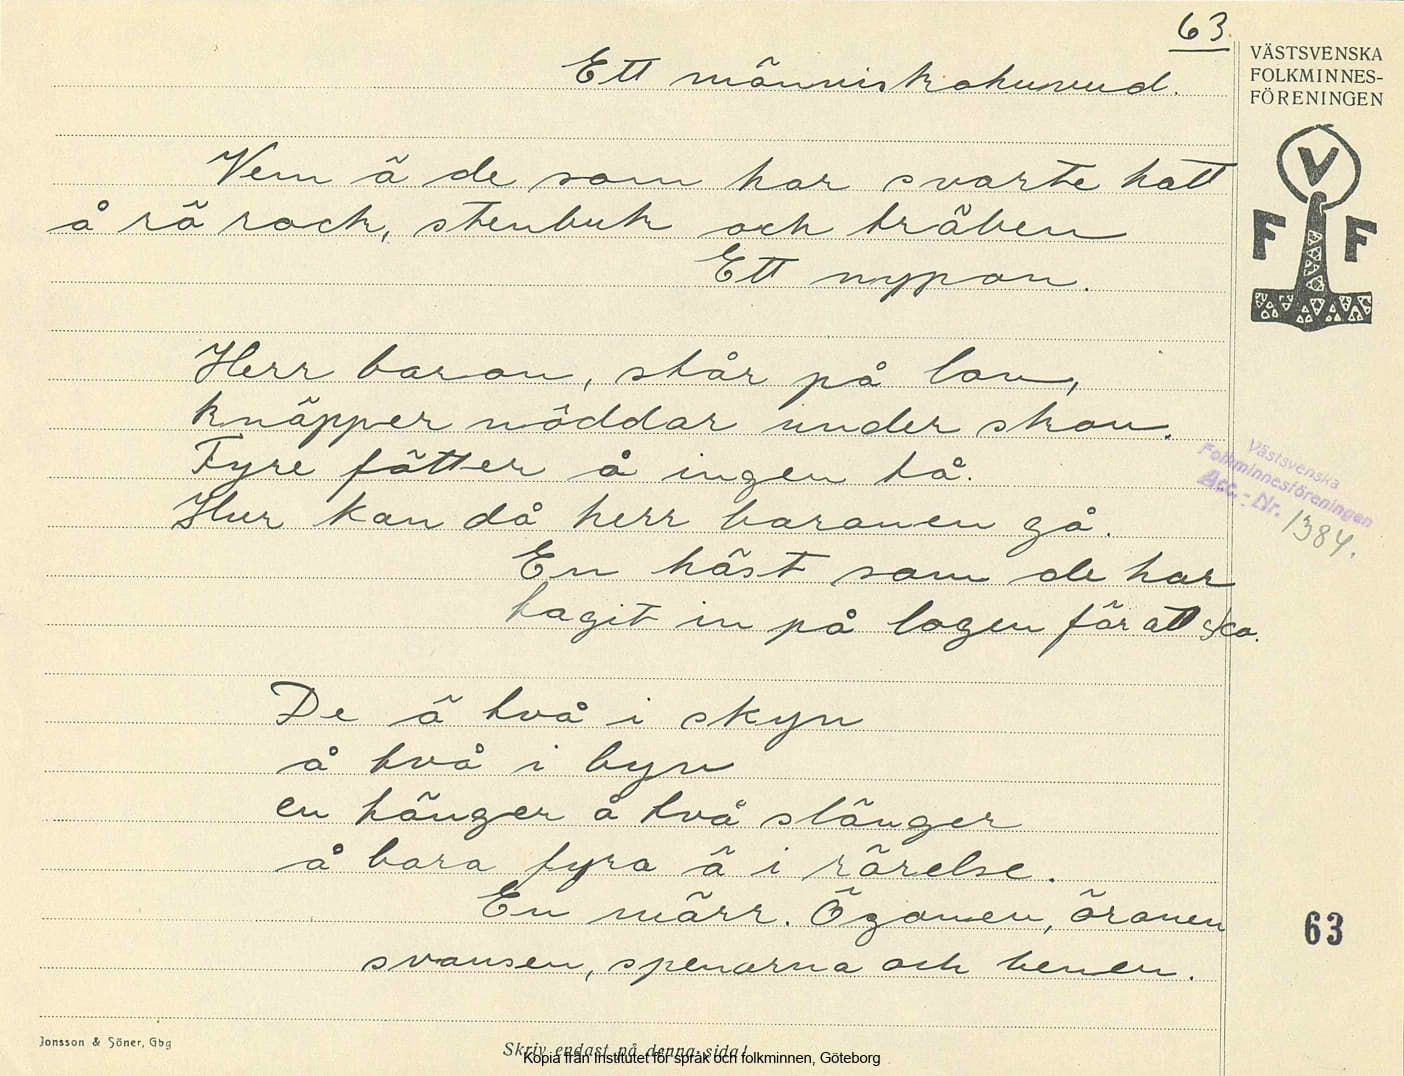 63.
VÄSTSVENSKA
FOLKMINNES-
FÖRENINGEN
V
F F
Ett människohuvud.
Vem ä de som har svarte hatt
å rö rock, stenbuk och träben
Ett nypon.
Herr baron, står på lon,
knäpper nöddar under skon.
Fyre fötter å ingen tå.
Hur kan då herr baronen gå.
En häst som de har
tagit in på logen för att sko.
Västsvenska
Folkminnesföreningen
Acc.-Nr. 1384.
De ä två i skyn
å två i byn
en hänger å två slänger
å bara fyra ä i rörelse.
En märr. Ögonen, öronen
svansen, spenarna och benen.
63
Jonsson & Söner, Gbg
Skriv endast på denna sida!
Kopia från Institutet för språk och folkminnen, Göteborg